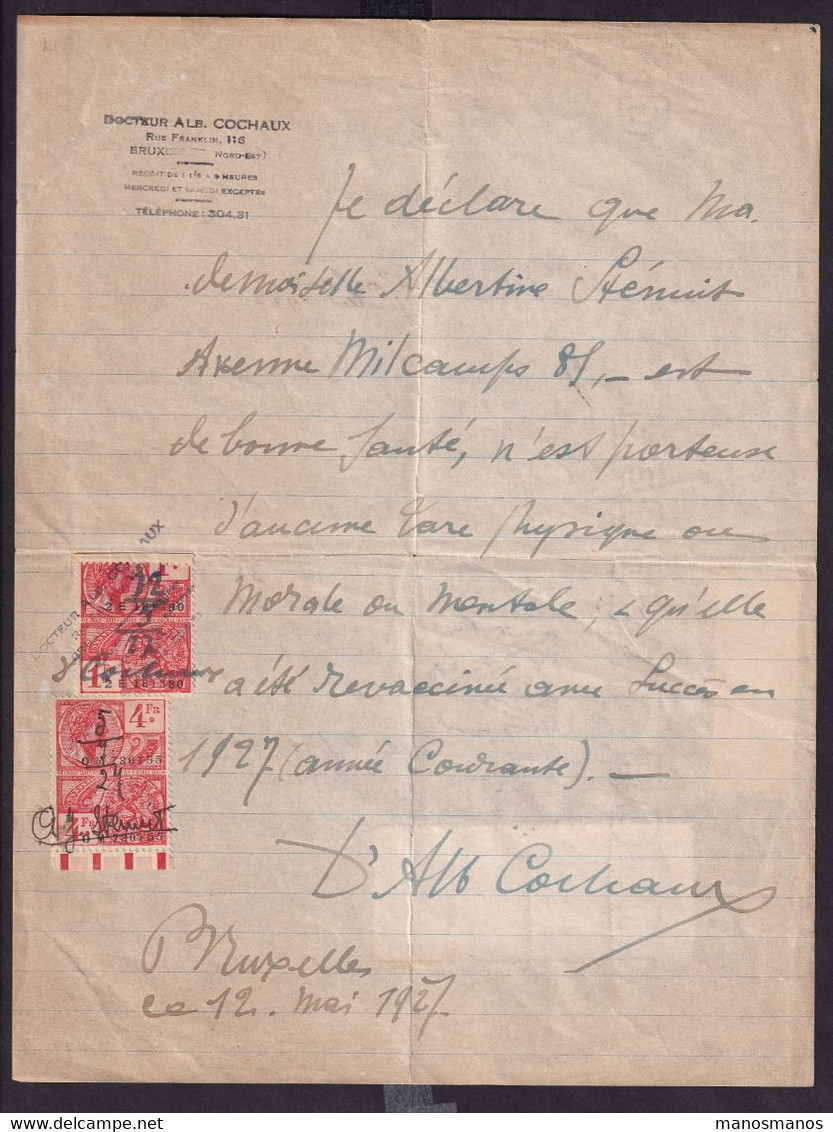 DOCTEUR ALB. COCHAUX
RUE FRANKLIN, 116
BRUX NORD-EST)
REÇOIT DE 1 1/2 A 3 HEURES
MERCREDI ET SAMEDI EXCEPTÉS
TÉLÉPHONE : 304,31
Je déclare que Ma
demoiselle Albertine Sténuit
Avenue Milcamps 85, — est
de bonne Santé, n'est porteuse
d'aucune tare physique ou
Morale ou Mentale, qu'elle
a été revaccinée avec Succès en
1927 (année Courante). —
Dr Alb Cochaux
Bruxelles
ce 12. Mai 1927
AUX
DOCTEUR
12
5
27
2 E 181380
1 Fr
2 E 181380
Cochaux
4 FR
5
O M 730155
27
Sténuit
O M 730155
manosmanos